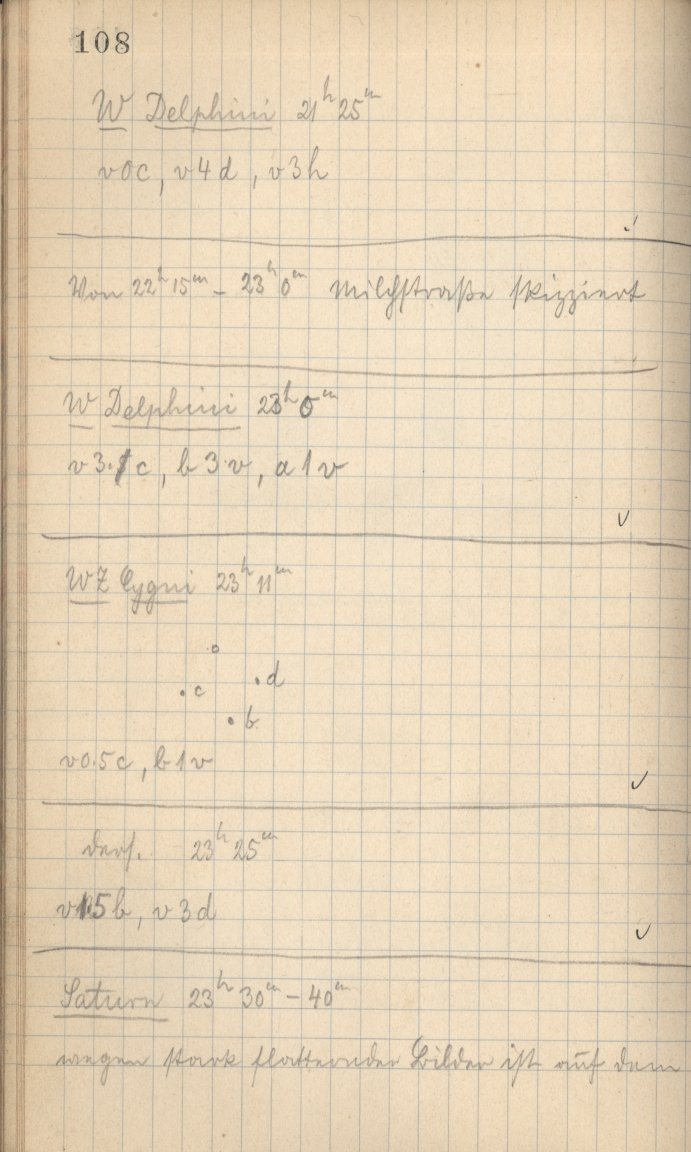 108
W Delphini 21h 25m
v0c, v4d, v3h
Von 22h 15m – 23h 0m Milchstraße skizziert
W Delphini 23h 0m
v3c, b3v, a1v
WZ Cygni 23h 11m
c d
b
v0.5c, b1v
ders. 23h 25m
v1.5b, v3d
Saturn 23h 30m – 40m
wegen stark flatternder Bilder ist auf dem